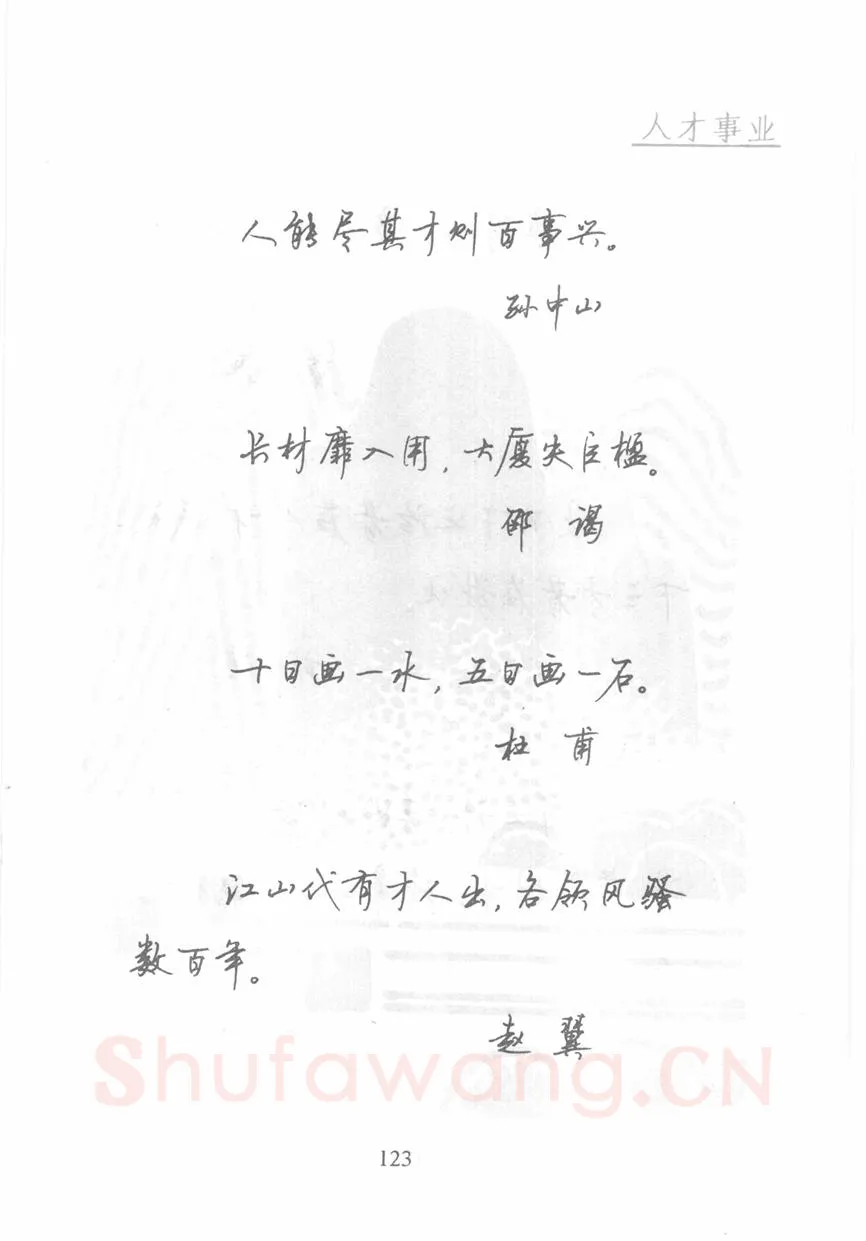 人才事业
人能尽其才则百事兴。
孙中山
长材靡入用，大厦失巨楹。
邵 谒
十日画一水，五日画一石。
杜 甫
江山代有才人出，各领风骚
数百年。
赵 翼
Shufawang.CN
123